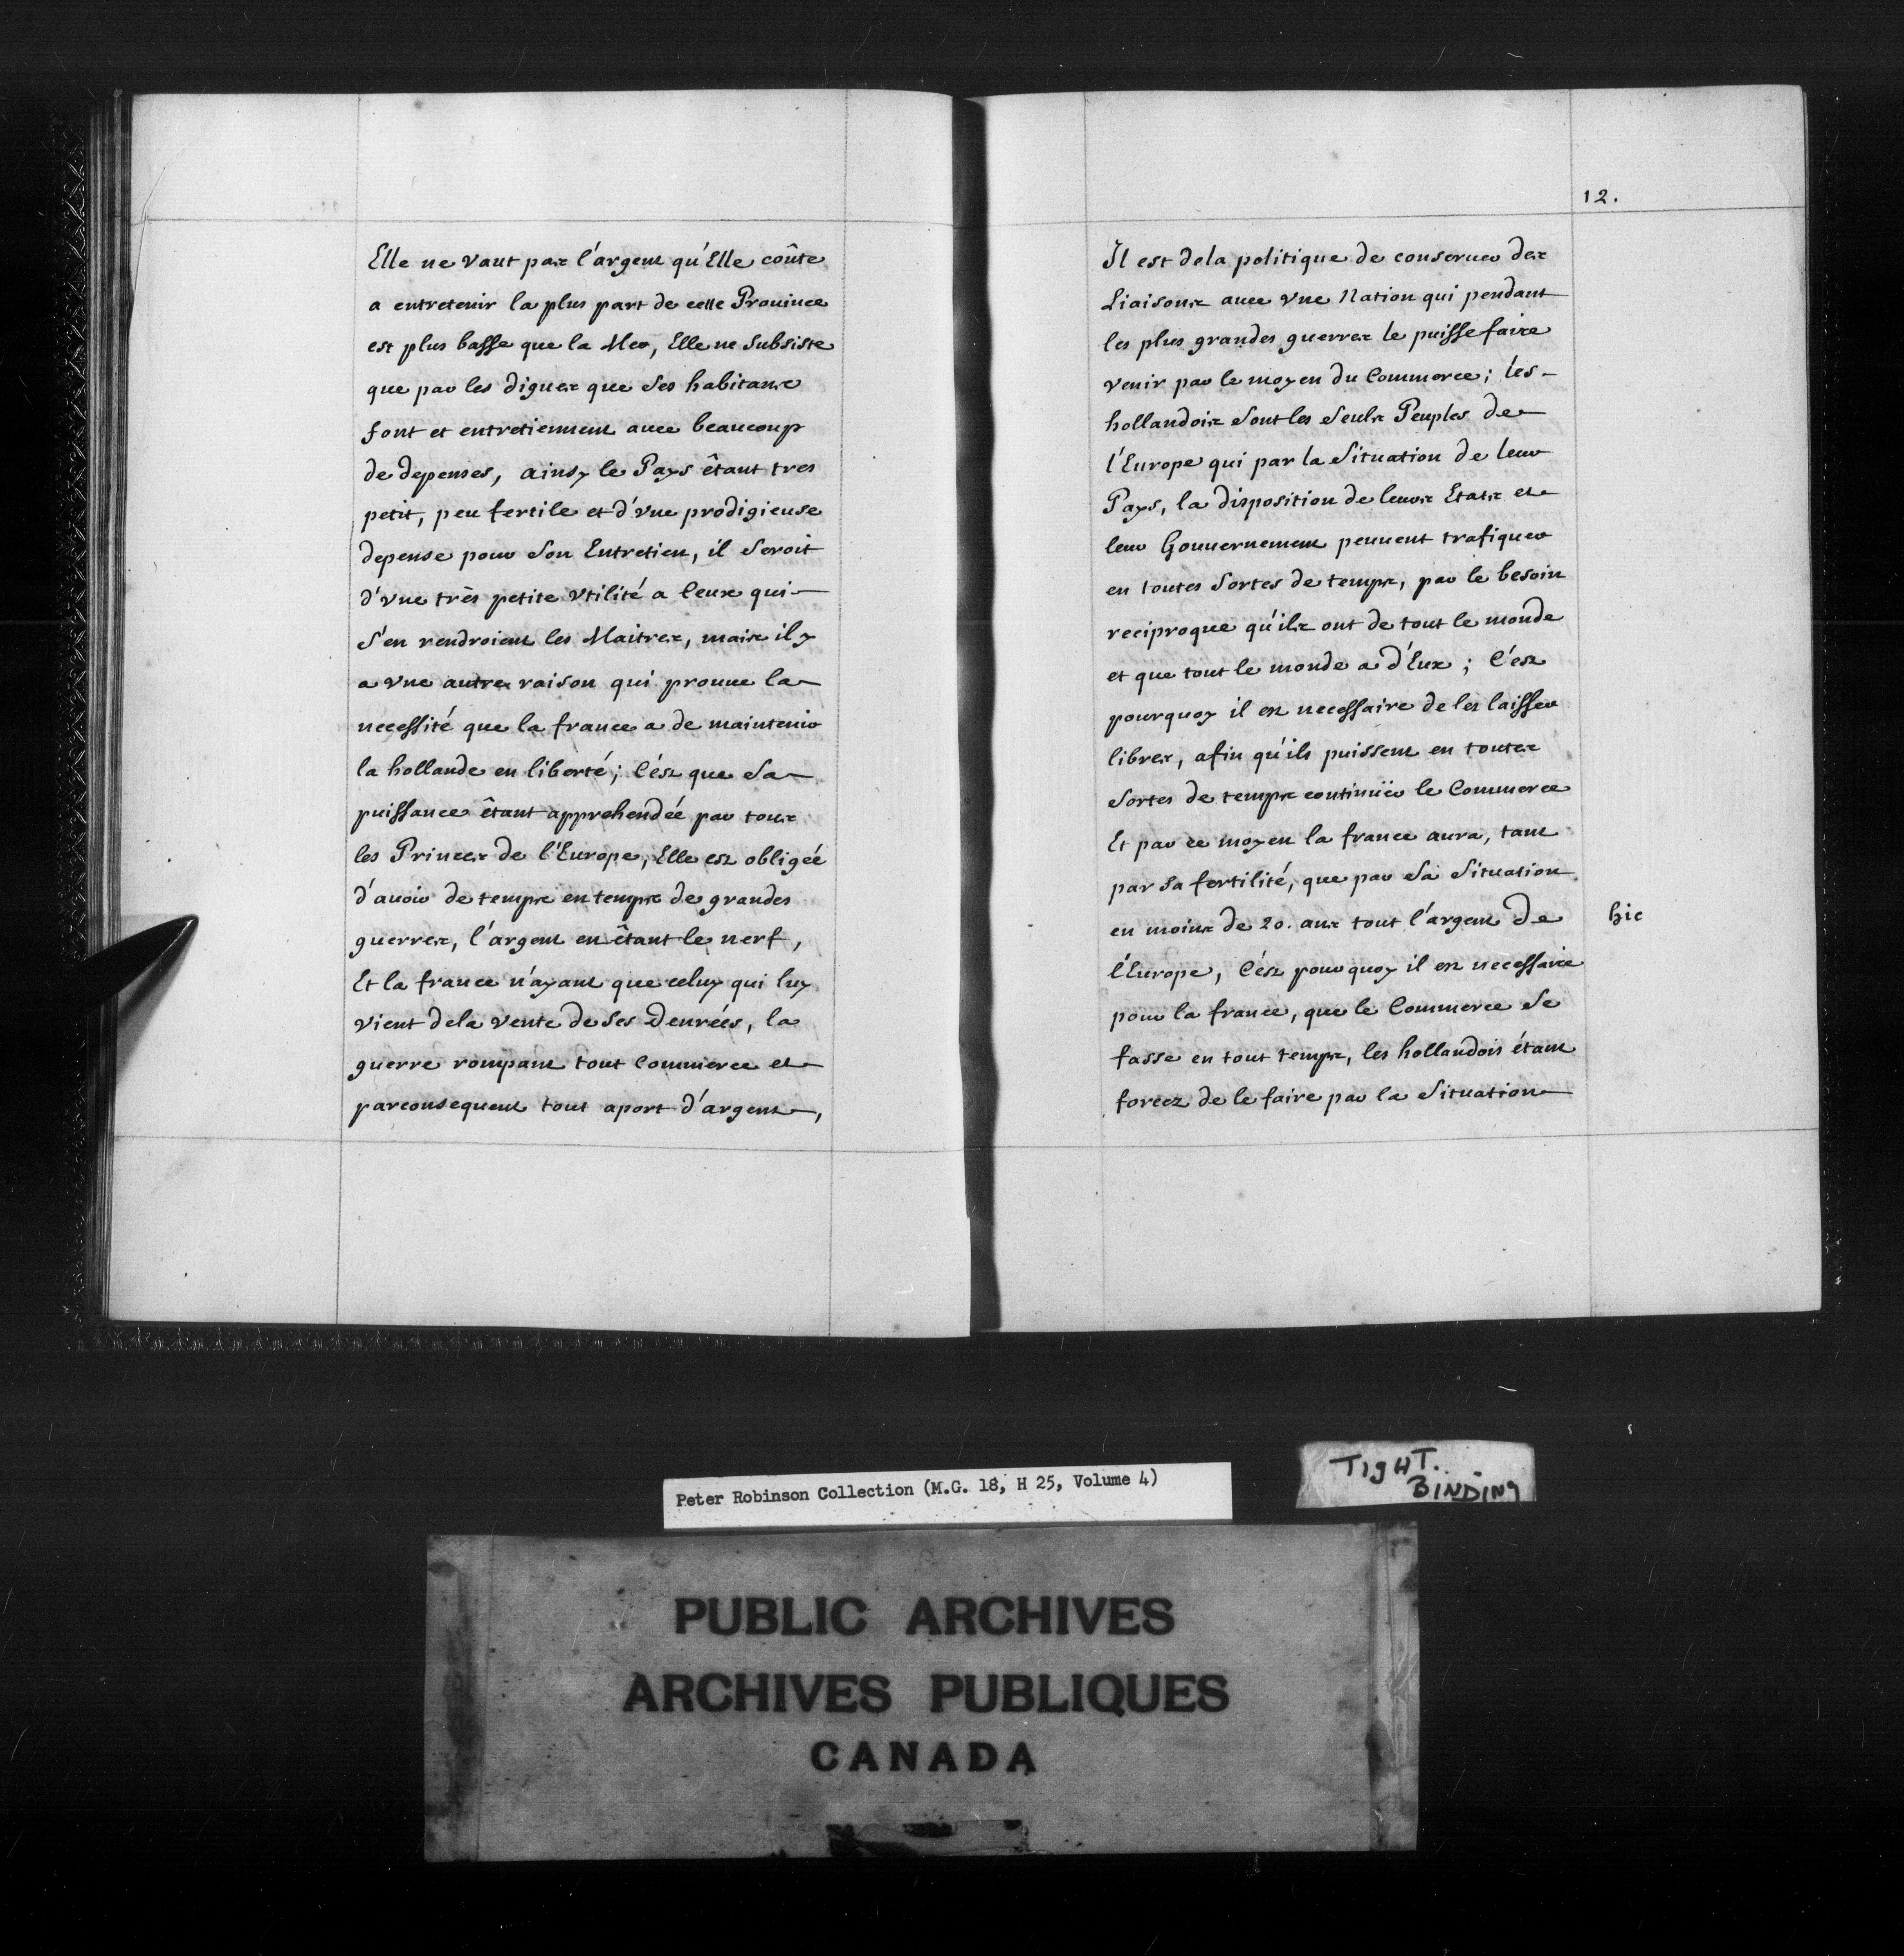 Elle ne vaut pas l'argent qu'Elle coûte
a entretenir la plus part de cette Prouince
est plus basse que la Mer, Elle ne subsiste
que par les digues que ses habitans
font et entretiennent auec beaucoup
de depenses, ainsy le Pays êtant tres
petit, peu fertile et d'vne prodigieuse
depense pour son Entretien, il seroit
d'vne très petite vtilité a Ceux qui
s'en rendroient les Maitres, mais il y
a vne autre raison qui prouue la
necessité que la france a de maintenir
la hollande en liberté; C'ést que sa
puissance êtant apprehendée par tous
les Princes de l'Europe, Elle est obligée
d'auoir de temps en temps de grandes
guerres, l'argent en êtant le nerf,
Et la france n'ayant que celuy qui luy
vient dela vente de ses Denrées, la
guerre rompant tout Commerce et
parconsequent tout aport d'argent,
12.
Il est dela politique de conseruer des
Liaisons auec vne Nation qui pendant
les plus grandes guerres le puisse faire
venir par le moyen du Commerce; les
hollandois sont les seuls Peuples de
l'Europe qui par la situation de leur
Pays, la disposition de leurs Etats et
leur Gouuernement peuuent trafiquer
en toutes sortes de temps, par le besoin
reciproque qu'ils ont de tout le monde
et que tout le monde a d'Eux; C'est
pourquoy il est necessaire de les laisser
libres, afin qu'ils puissent en toutes
sortes de temps continüer le Commerce
Et par ce moyen la france aura, tant
par sa fertilité, que par sa situation
en moins de 20. ans tout l'argent de
hic
l'Europe, C'est pourquoy il est necessaire
pour la france, que le Commerce se
fasse en tout temps, les hollandois étant
forcez de le faire par la situation
Peter Robinson Collection (M.G. 18, H 25, Volume 4)
TIGHT.
BINDING
PUBLIC ARCHIVES
ARCHIVES PUBLIQUES
CANADA